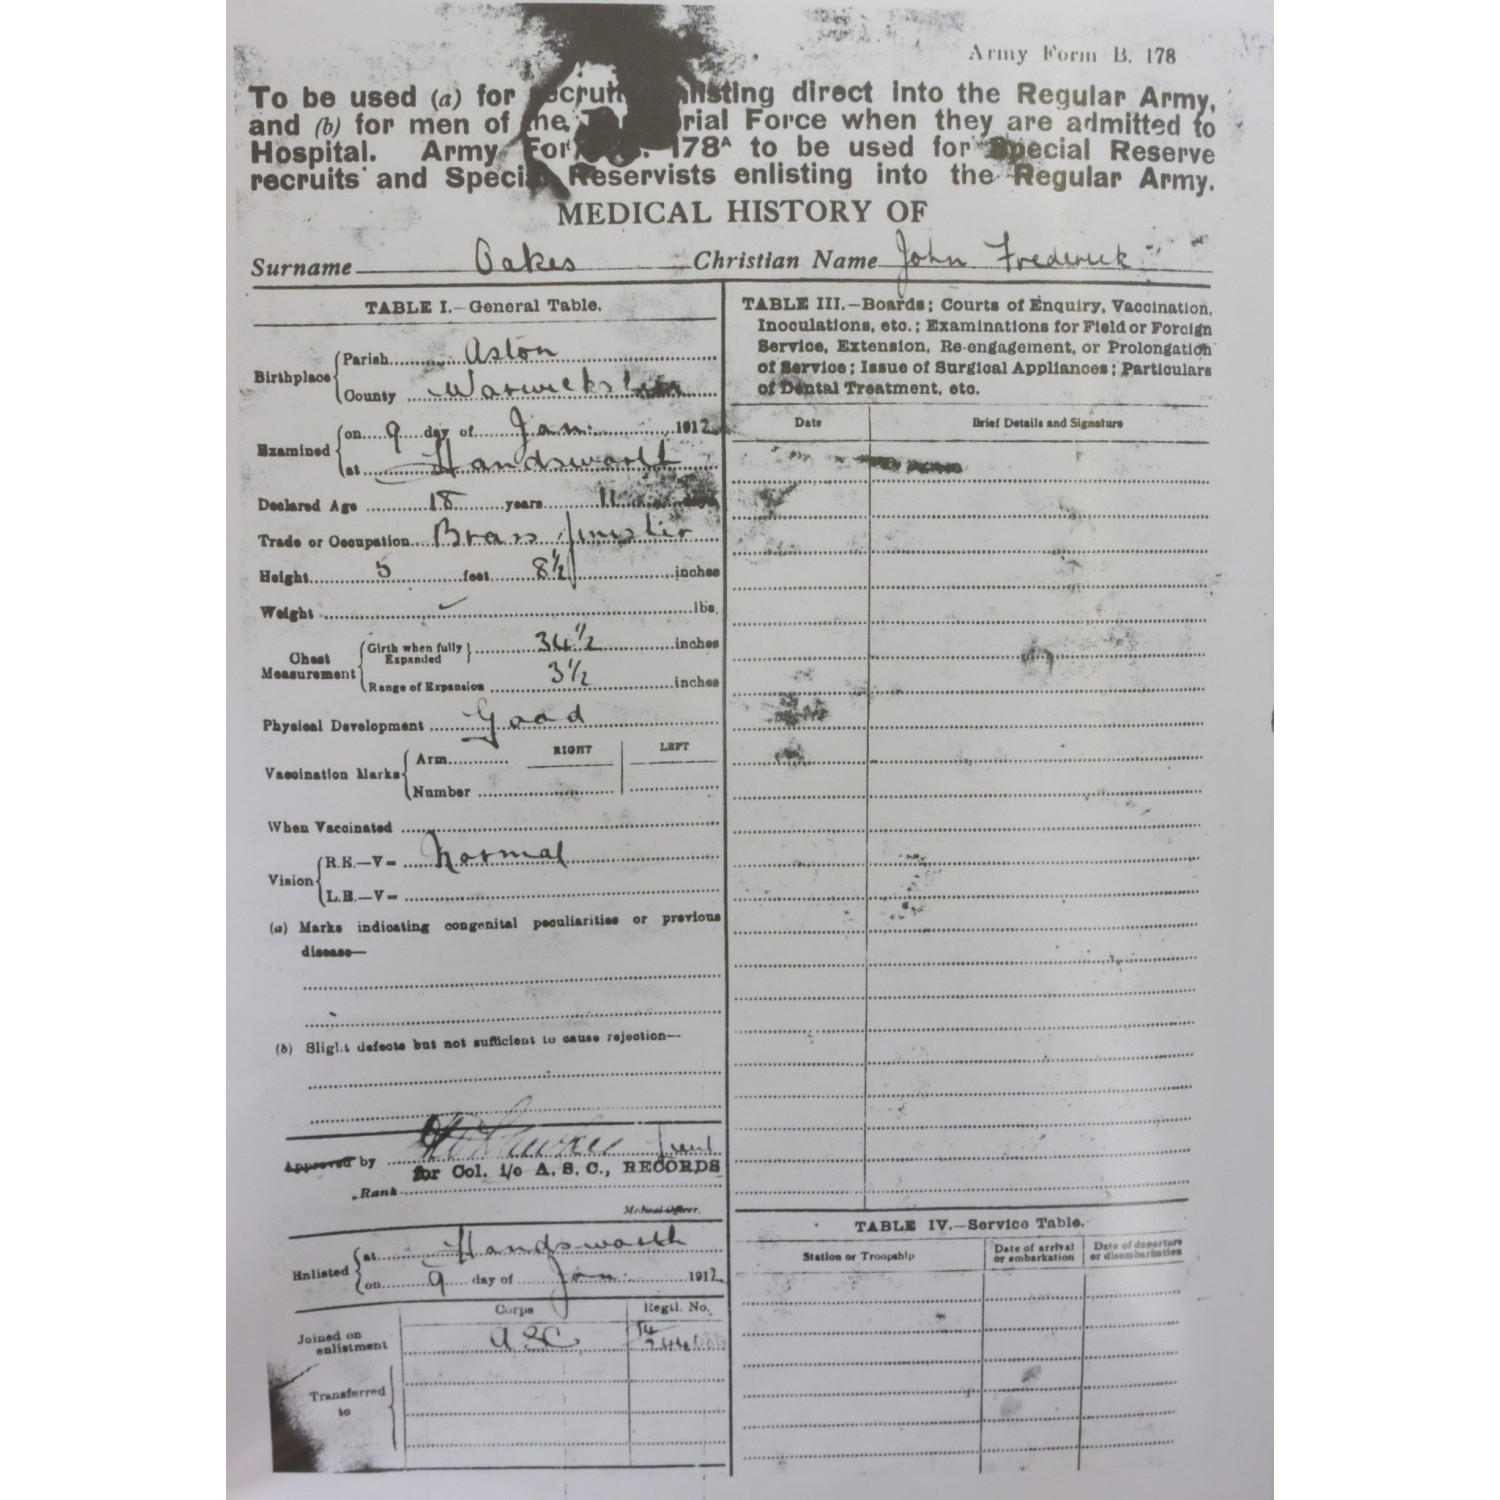 Army Form B. 178
To be used (a) for enlisting direct into the Regular Army,
and (b) for men of the Force when they are admitted to
Hospital. Army 178A to be used for Special Reserve
recruits and Special Reservists enlisting into the Regular Army.
MEDICAL HISTORY OF
Surname Oakes Christian Name John Frederick
TABLE I.—General Table.
Birthplace
Parish Aston
County Warwickshire
Examined
on 9 day of Jan. 1912
at Handsworth
Declared Age 18 years 11
Trade or Occupation Brass finisher
Height 5 feet 8½ inches
Weight lbs.
Chest Measurement
Girth when fully Expanded 34½ inches
Range of Expansion 3½ inches
Physical Development Good
Vaccination Marks
RIGHT LEFT
Arm
Number
When Vaccinated
Vision
R.E.—V= Normal
L.E.—V=
(a) Marks indicating congenital peculiarities or previous
disease—
(b) Slight defects but not sufficient to cause rejection—
Approved by
for Col. i/c A. S. C., RECORDS
Rank
Medical Officer.
Enlisted
at Handsworth
on 9 day of Jan. 1912
Corps Regtl. No.
Joined on
enlistment
ASC
Transferred
to
TABLE III.—Boards; Courts of Enquiry, Vaccination,
Inoculations, etc.; Examinations for Field or Foreign
Service, Extension, Re-engagement, or Prolongation
of Service; Issue of Surgical Appliances; Particulars
of Dental Treatment, etc.
Date Brief Details and Signature
TABLE IV.—Service Table.
Station or Troopship
Date of arrival
or embarkation
Date of departure
or disembarkation